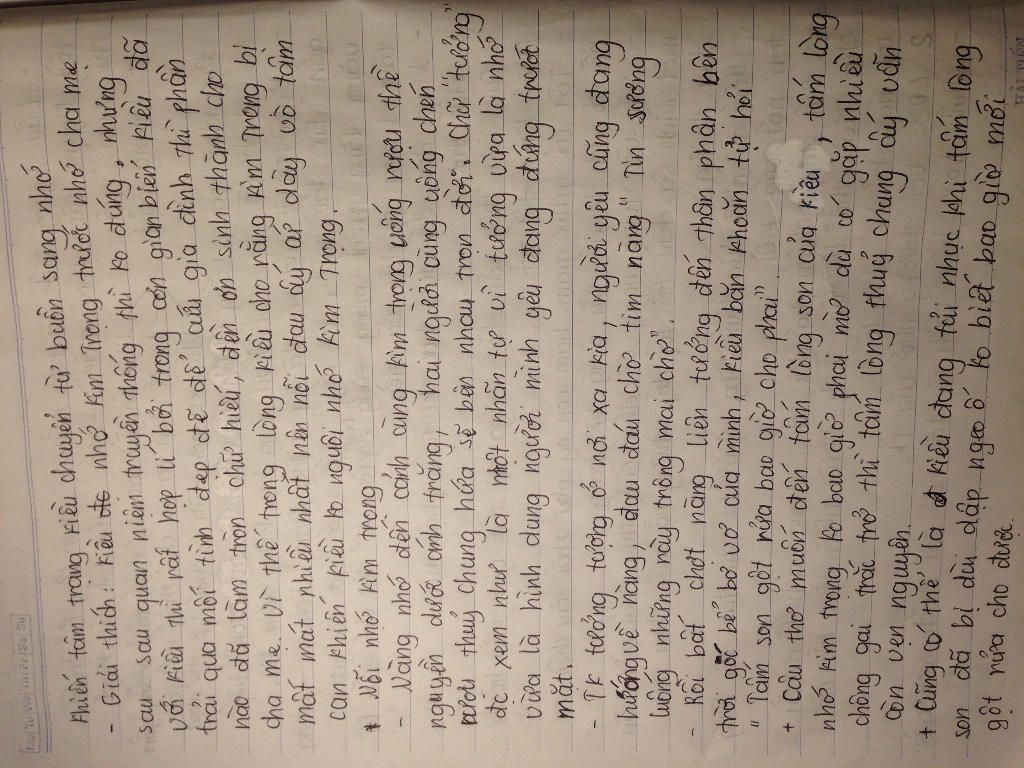 Mo Tu We Th Fr Sa Su
khiến tâm trạng kiều chuyển từ buồn sang nhớ
- Giải thích: kiều nhớ kim Trọng trước nhớ cha mẹ
sau quan niệm truyền thống thì ko đúng, nhưng
với kiều thì rất hợp lí bởi trong cơn gian biến kiều đã
trải qua mối tình đẹp đẽ để cứu gia đình thì phần
nào đã làm tròn chữ hiếu, đền ơn sinh thành cho
cha mẹ vì thế trong lòng kiều cho rằng kim Trọng bị
mất mát nhiều nhất nên nỗi đau ấy áp dày vò tâm
can khiến kiều ko nguôi nhớ kim Trọng.
* Nỗi nhớ kim trọng
- Nàng nhớ đến cảnh cùng kim trọng uống rượu thề
nguyền dưới ánh trăng, hai người cùng uống chén
rượu thuỷ chung hứa sẽ bên nhau trọn đời. Chữ "tưởng"
đc xem như là một nhãn tự vì tưởng vừa là nhớ
vừa là hình dung người mình yêu đang đứng trước
mắt.
- Tk tưởng tượng ở nơi xa kia, người yêu cũng đang
hướng về nàng, đau đáu chờ tim nàng "Tin sương
luống những rày trông mai chờ".
- Rồi bất chợt nàng liên tưởng đến thân phận bên
trời góc bể bơ vơ của mình, kiều băn khoăn tự hỏi
"Tấm son gột rửa bao giờ cho phai"
+ Câu thơ muốn đến tấm lòng son của kiều, tấm lòng
nhớ kim trọng ko bao giờ phai mờ dù có gặp nhiều
chông gai trắc trở thì tấm lòng thuỷ chung ấy vẫn
còn vẹn nguyên.
+ Cũng có thể là kiều đang tủi nhục khi tấm lòng
son đã bị dùi dập ngeo ố ko biết bao giờ mới
gột rửa cho được.
HẢI TIẾN